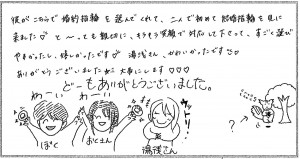 彼がこのうちで婚約指輪を選んでくれて、二人で初めて結婚指輪を見に
来れた♡ と〜っても親切に、そうそう笑顔で対応して下さって、すごく選び
やすかったし、嬉しかったです♡ 湯浅さん、かわいかったです♡
ありがとうございました!! 大事にします♡♡♡
どーもありがとうございました。
わーい
わーい
ぼく
おくさん
湯浅さん
?